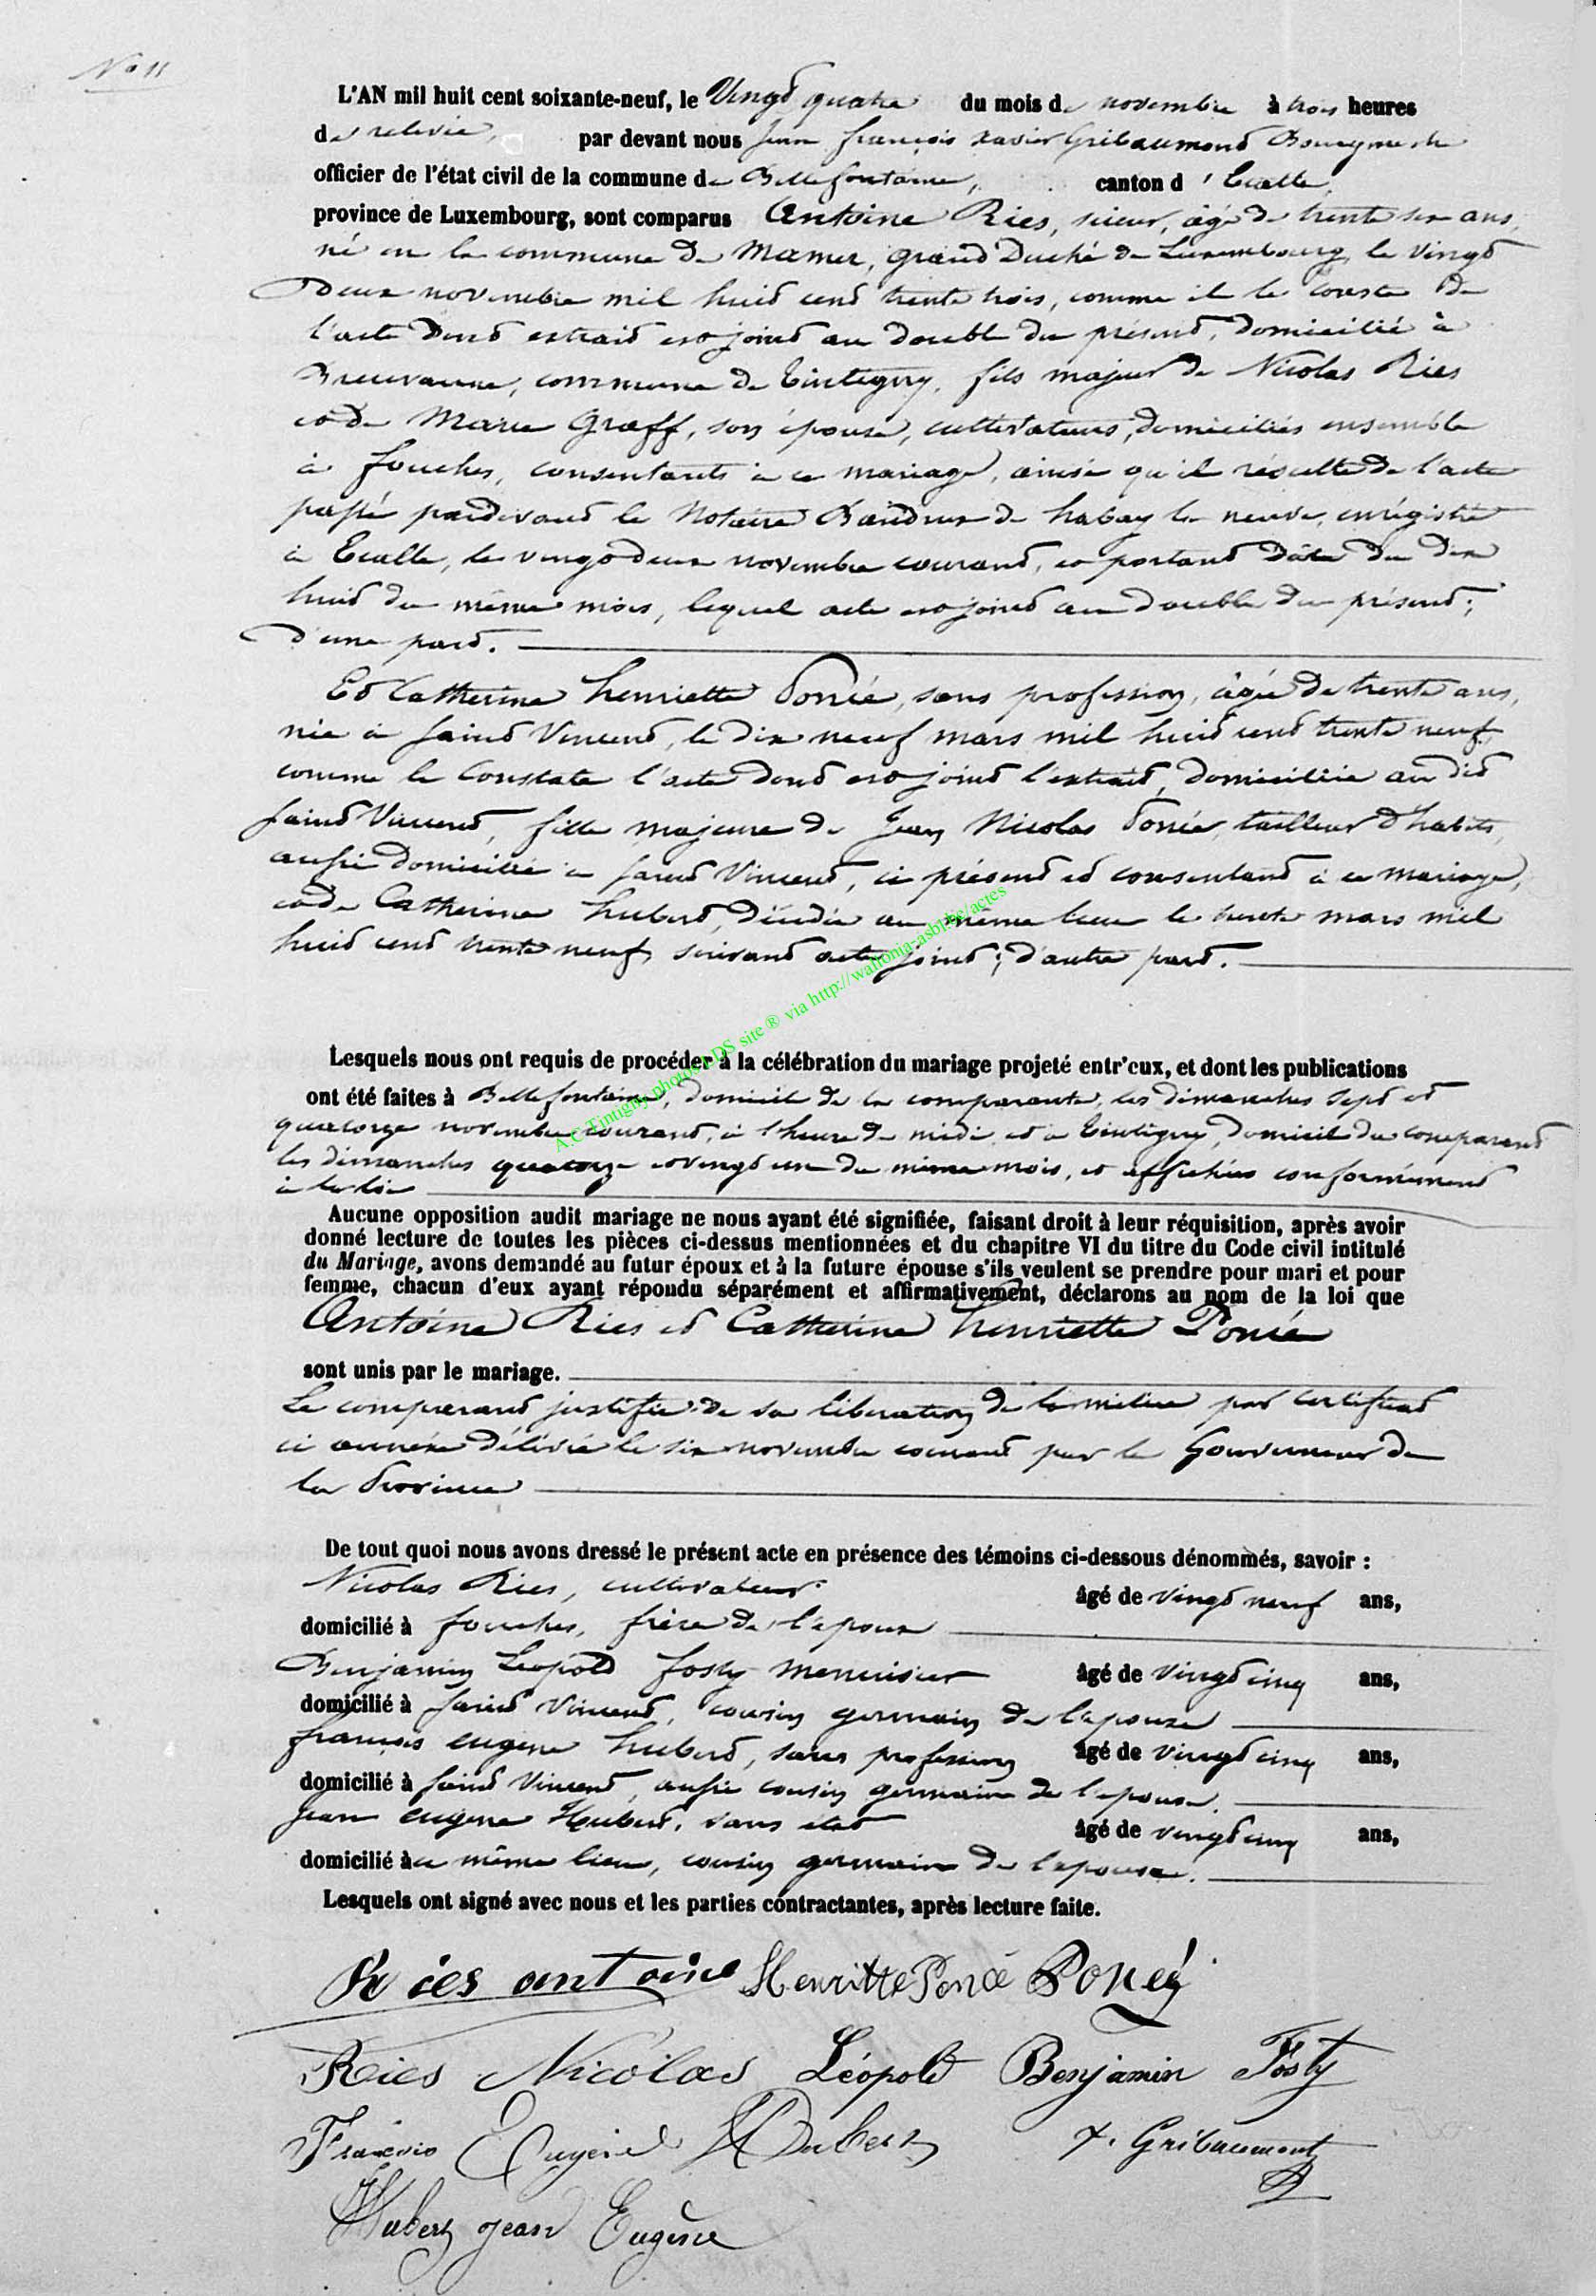 No 11
L'AN mil huit cent soixante-neuf, le Vingt quatre du mois de novembre à trois heures
de relevée, par devant nous Jean françois xavier Gribaumont Bourgmestre
officier de l'état civil de la commune de Bellefontaine, canton d'Etalle,
province de Luxembourg, sont comparus Antoine Ries, scieur, âgé de trente six ans,
né en la commune de Mamer, grand Duché de Luxembourg, le vingt
deux novembre mil huit cent trente trois, comme il le conste de
l'acte dont extrait est joint au double du présent, domicilié à
Breuvanne, commune de Tintigny, fils majeur de Nicolas Ries
et de Marie Graff, son épouse, cultivateurs, domiciliés ensemble
à fouches, consentants à ce mariage, ainsi qu'il résulte de l'acte
passé pardevant le Notaire de habay la neuve, enrégistré
à Etalle, le vingt deux novembre courant, et portant date du dix
huit du même mois, lequel acte est joint au double du présent;
d'une part.
Et Catherine henriette Poncé, sans profession, âgée de trente ans,
née à saint Vincent, le dix neuf mars mil huit cent trente neuf
comme le constate l'acte dont est joint l'extrait, domiciliée au dit
saint Vincent, fille majeure de Jean Nicolas Poncé, tailleur d'habits,
aussi domicilié à saint Vincent, ci présent et consentant à ce mariage,
et de Catherine hubert, décédée au même lieu le trente mars mil
huit cent trente neuf, suivant acte joint; d'autre part.
A.C. Tintigny photos LDS site ® via http://wallonia-asbl.be/actes
Lesquels nous ont requis de procéder à la célébration du mariage projeté entr'eux, et dont les publications
ont été faites à Bellefontaine, domicile de la comparante, les dimanches sept et
quatorze novembre courant, à l'heure de midi, et à Tintigny, domicile du comparant
les dimanches quatorze et vingt un du même mois, et affichées conformément
à la loi
Aucune opposition audit mariage ne nous ayant été signifiée, faisant droit à leur réquisition, après avoir
donné lecture de toutes les pièces ci-dessus mentionnées et du chapitre VI du titre du Code civil intitulé
du Mariage, avons demandé au futur époux et à la future épouse s'ils veulent se prendre pour mari et pour
femme, chacun d'eux ayant répondu séparément et affirmativement, déclarons au nom de la loi que
Antoine Ries et Catherine henriette Poncé
sont unis par le mariage.
Le comparant justifie de sa libération de la milice par certificat
ci annexé délivré le six novembre courant par le Gouverneur de
la Province
De tout quoi nous avons dressé le présent acte en présence des témoins ci-dessous dénommés, savoir :
Nicolas Ries, cultivateur âgé de vingt neuf ans,
domicilié à fouches, frère de l'époux
Benjamin Léopold fosty menuisier âgé de vingt cinq ans,
domicilié à saint Vincent, cousin germain de l'épouse
françois eugene hubert, sans profession âgé de vingt cinq ans,
domicilié à saint Vincent, aussi cousin germain de l'épouse.
jean eugene Hubert, sans état âgé de vingt cinq ans,
domicilié à ce même lieu, cousin germain de l'épouse.
Lesquels ont signé avec nous et les parties contractantes, après lecture faite.
Ries antoine Henritte Poncé Poncé
Ries Nicolas Léopold Benjamin Fosty
François Eugène Hubert x. Gribaumont
Hubert jean Eugène